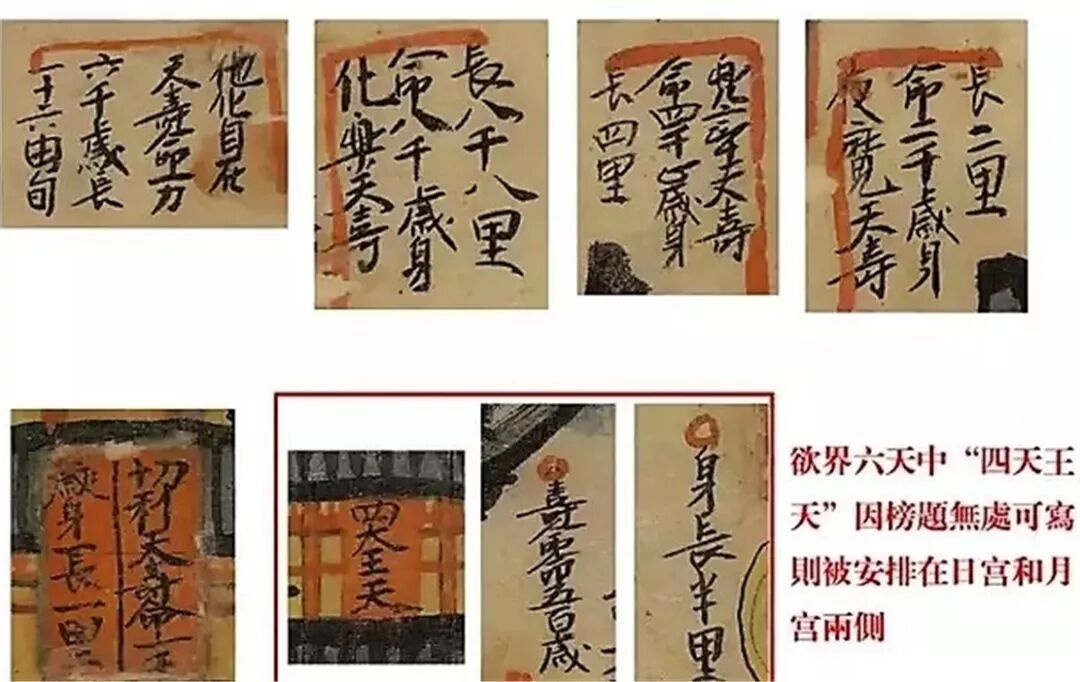 他化自在
天壽命一万
六千歲長
一十六由旬
化樂天壽
命八千歲身
長八千八里
兜率天壽
命四千歲身
長四里
天壽
命二千歲身
長二里
切利天壽命一
歲身長一
四天王天
壽命五百歲
身長半里
欲界六天中“四天王
天”因榜題無處可寫
則被安排在日宫和月
宫兩側